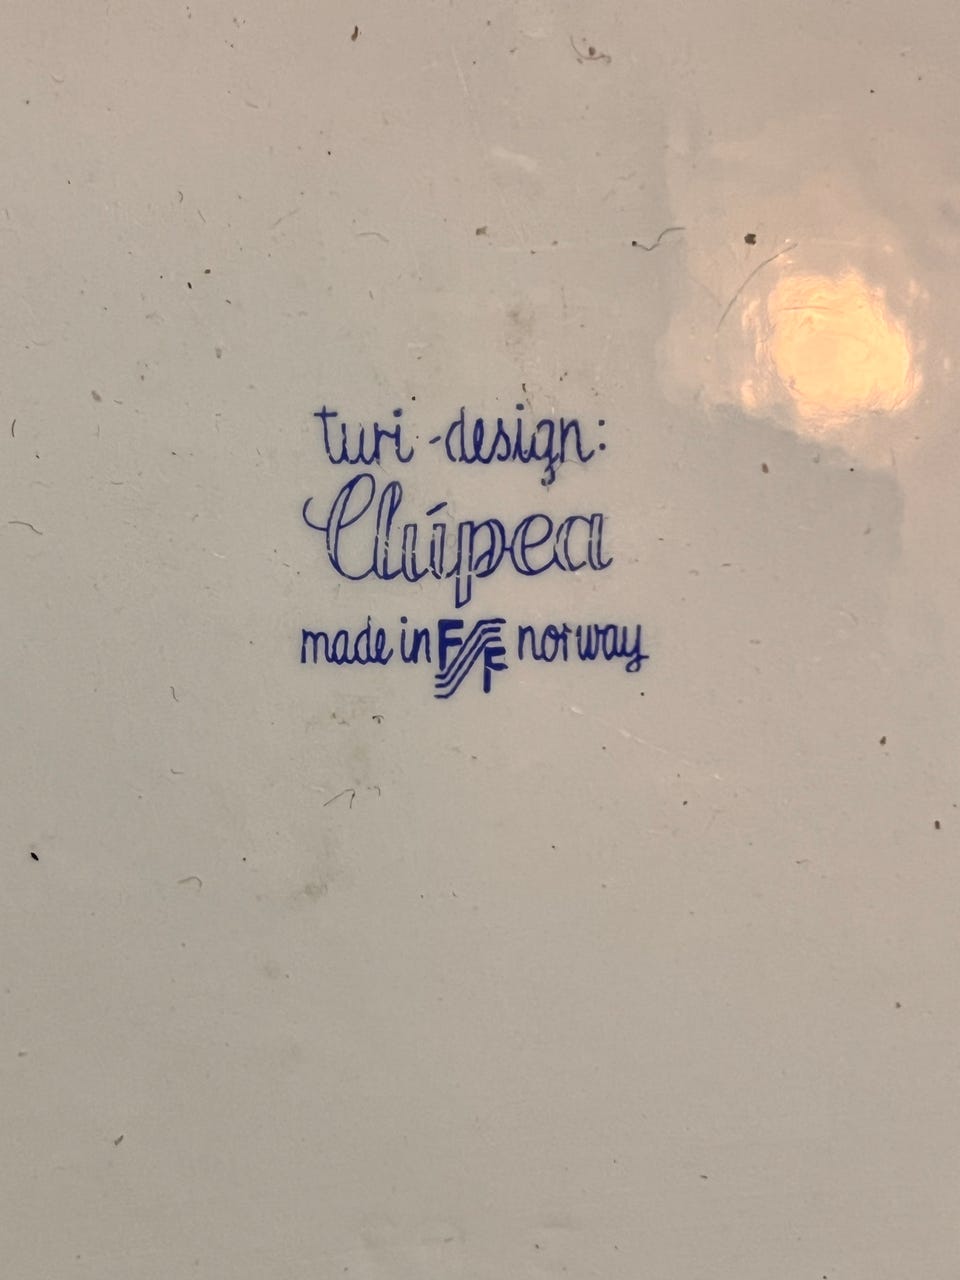 turi-design:
Clúpea
made in FF norway